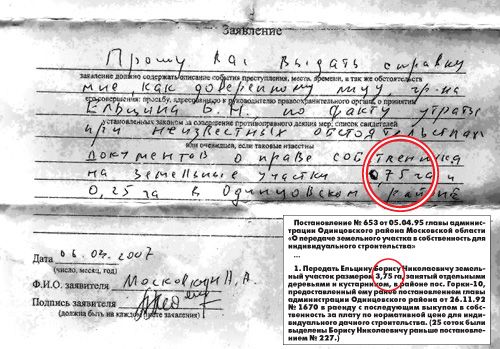 Заявление
Прошу Вас выдать справку
заявление должно содержать описание события преступления, места, времени, а так же обстоятельств
мне, как доверенному лицу гр-на
его совершения: просьбу, адресованную к руководителю правоохранительного органа, о принятии
Ельцина Б.Н. по факту утраты
установленных законом за совершение противоправного деяния мер, список свидетелей
при неизвестных обстоятельствах
или очевидцев, если таковые известны
документов о праве собственника
на земельные участки 0,75 га и
0,25 га в Одинцовском районе
Дата 06.04.2007
(число, месяц, год)
Ф.И.О. заявителя
Подпись заявителя
(должна быть на каждом листе заявления)
Постановление № 653 от 05.04.95 главы админис-
трации Одинцовского района Московской области
«О передаче земельного участка в собственность для
индивидуального строительства»
...
1. Передать Ельцину Борису Николаевичу земель-
ный участок размером 3,75 га, занятый отдельными
деревьями и кустарником, в районе пос. Горки-10,
предоставленный ему ранее постановлением главы
администрации Одинцовского района от 26.11.92
№ 1670 в аренду с последующим выкупом в соб-
ственность за плату по нормативной цене для инди-
видуального дачного строительства. (25 соток были
выделены Борису Николаевичу раньше постановле-
нием № 227.)